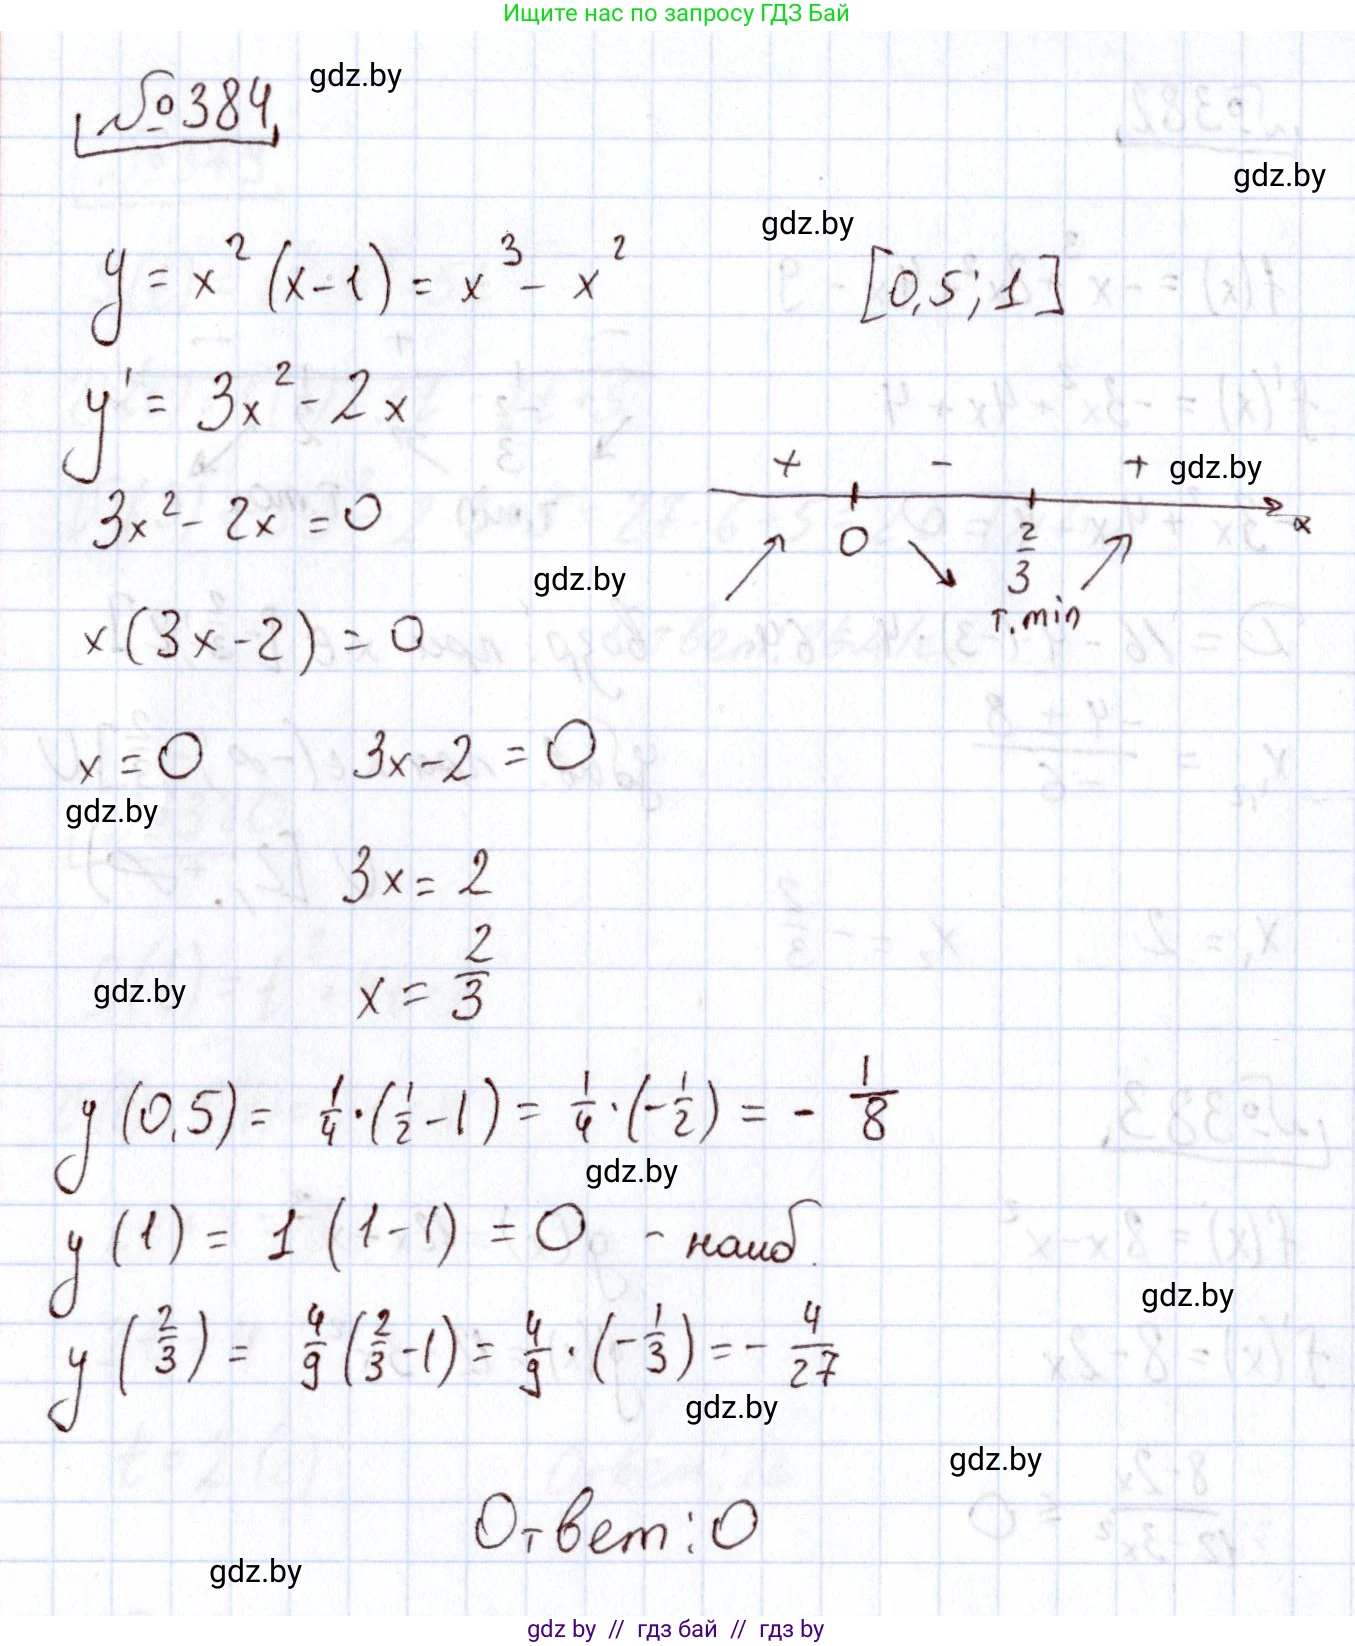 Ищите нас по запросу ГДЗ Бай
№384
gdz.by
gdz.by
gdz.by
y = x² (x-1) = x³ - x² [0,5; 1]
y' = 3x² - 2x
+ - + gdz.by
3x² - 2x = 0
0 2/3 x
gdz.by
т. min
x(3x-2) = 0
x = 0 3x-2 = 0
gdz.by
3x = 2
x = 2/3
gdz.by
y(0,5) = 1/4 · (1/2 - 1) = 1/4 · (-1/2) = - 1/8
gdz.by
y(1) = 1 (1-1) = 0 - наиб.
gdz.by
y(2/3) = 4/9 (2/3 - 1) = 4/9 · (-1/3) = - 4/27
gdz.by
gdz.by
Ответ: 0
gdz.by
gdz by // гдз бай // гдз by